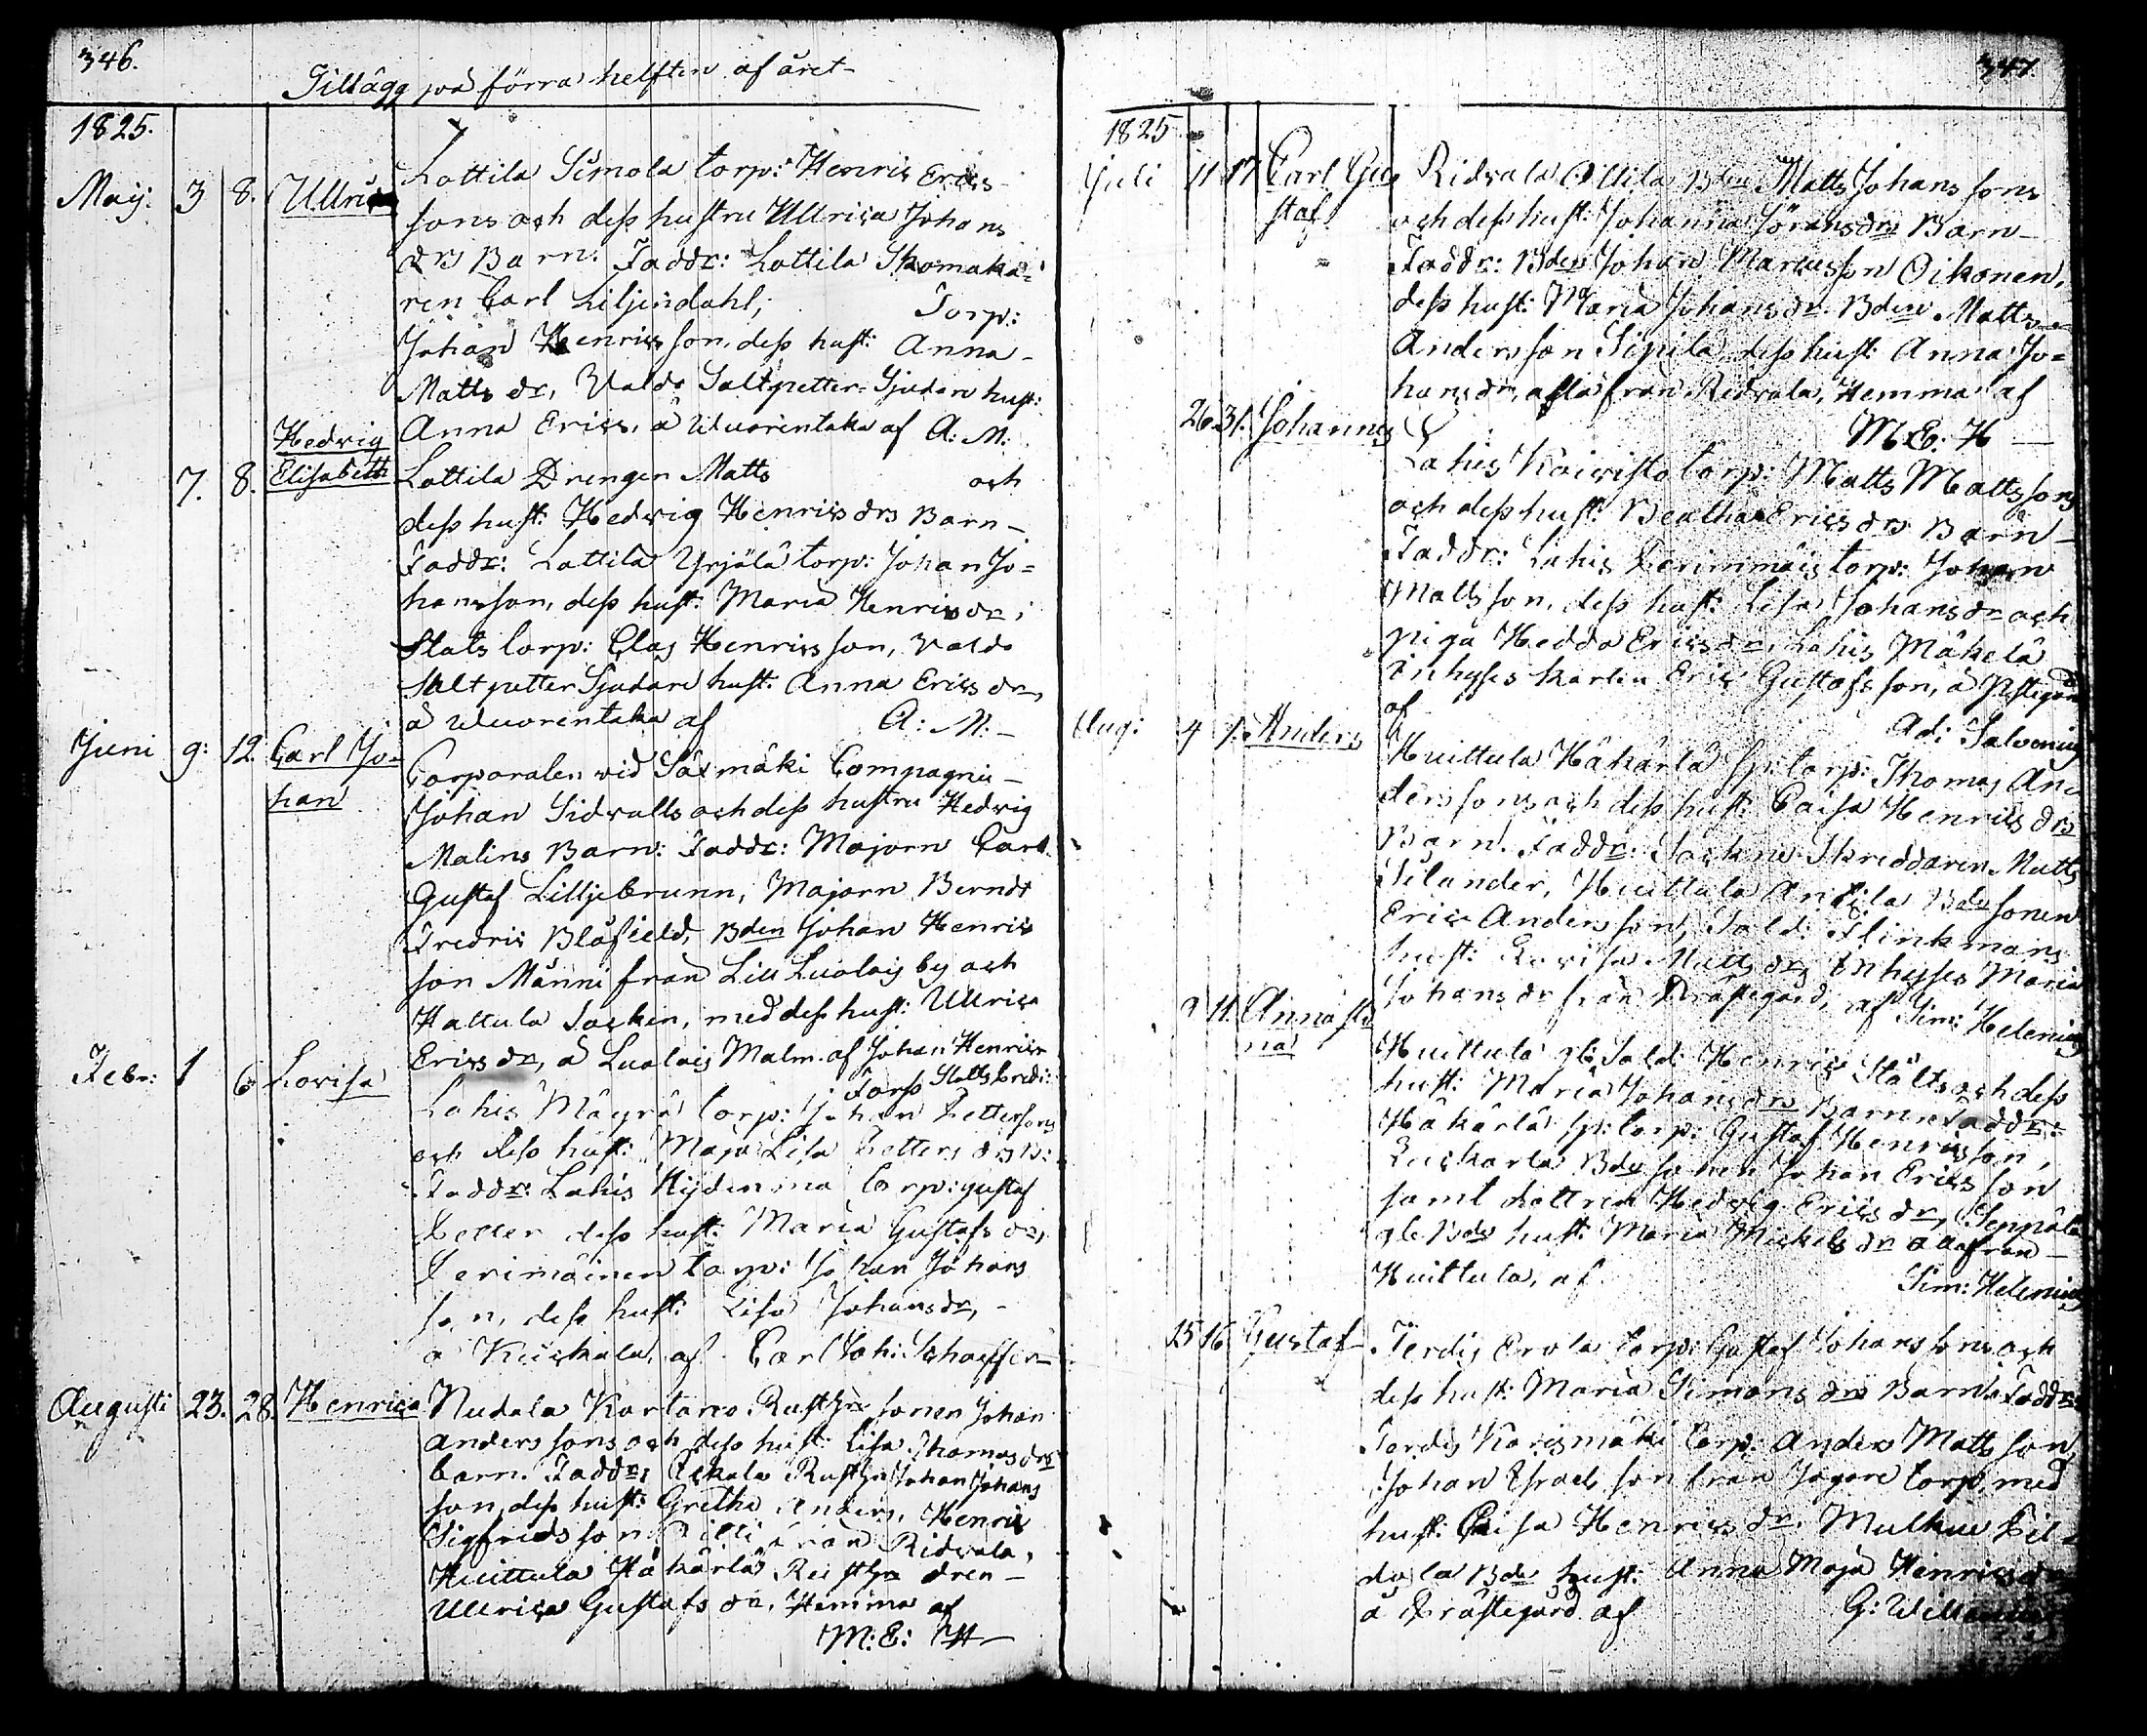 346.
Tillägg på förra helften af året
1825.
May: 3 8. Ullrica
Lottila Simola torp: Henric Erics
sons och dess hustru Ullrica Johans
drs Barn: Faddr: Lottila Skomaka=
ren Carl Liljendahl, Torp:
Johan Henricsson, dess hust: Anna
Matts dr, Valdo Saltpetter Sjudare hust:
Anna Erics, å Wuorentaka af A: M:
7. 8. Hedvig
Elisabeth
Lottila Drengen Matts och
dess hust: Hedvig Henrics drs Barn
Faddr: Lottila Yrjälä torp: Johan Jo=
hansson, dess hust: Maria Henricsdr,
Stats torp: Clas Henricsson, Valdo
Saltpetter Sjudare hust: Anna Erics dr,
å Wuorentaka af A: M:
Juni 9: 12. Carl Jo-
han
Corporalen vid Säxmäki Compagnie
Johan Sidvalls och dess hustru Hedvig
Malins Barn: Faddr: Majorn Carl
Gustaf Lilljebrunn, Majorn Berndt
Fredric Blåfield, Bden Johan Henrics
son Männi från Lill Luolais by och
Hattula Socken, med dess hust: Ullrica
Erics dr, å Luolais Malm af Johan Henric
Forss Statts Predi:
Febr: 1 6 Lovisa
Lahis Mäyrä torp: Johan Petterssons
och dess hust: Maja Lisa Petters drs B:
Faddr: Lahis Hydenma torp: Gustaf
Petter dess hust: Maria Gustafs dr,
Perimäinen torp: Johan Johans
son, dess hust: Lisa Johansdr,
å Kuiskala, af Carl Joh: Schaeffer
Augusti 23. 28. Henrica
Nudala Kartano Rusth: sonen Johan
Anders sons och dess hust: Lisa Thomas drs
barn. Faddr: Uskala Rusth: Johan Johans
son, dess hust: Gretha Anders, Henric
Sigfredsson Pilli från Ridvala,
Huittula Häkärlä Rusth: dren
Ullrica Gustafs dr. Hemma af
M: E: H
347.
1825
Juli 11 17 Carl Gu
staf
Ridvala Ollila Bden Matts Johans sons
och dess hust: Johanna Jöransdrs Barn
Faddr: Bden Johan Marcusson Oikonen,
dess hust: Maria Johansdr. Bden Matts
Andersson Sipilä, dess hust: Anna Jo=
hansdr, alla från Ridvala, Hemma af
M: E: H
26. 31. Johannes
Lahis Koivisto torp: Matts Mattssons
och dess hust: Beatha Erics drs Barn
Faddr: Lahis Perimmäis torp: Johan
Matts son, dess hust: Lisa Johansdr och
piga Hedda Erics dr, Lahis Mäkelä
Inhyses karlen Eric Gustafs son, å Prestegård
af Ad: Salvenius
Aug: 4 7. Anders
Huittula Häkärlä sp: torp: Thomas An
ders sons och dess hust: Caisa Henrics drs
Barn. Faddr: Sockne Skreddaren Matts
Silander, Huittula Anttila Bde sonen
Eric Andersson, Sold: Flinkmans
hust: Lovisa Matts dr, Inhyses Maria
Johans dr från Prästegård, af Sim: Helenius
9 11. Anna sti
na
Huittula gl: Sold: Henric Ståhls och dess
hust: Maria Johansdrs Barn Faddr:
Häkärlä sp: torp: Gustaf Henricsson,
Bde sonen Johan Ericsson
samt dottren Hedvig Erics dr, Seppälä
gle Bde hust: Maria Mickels dr alla från
Huittula, af Sim: Helenius
15 16 Gustaf
Terdis Erola torp: Gustaf Johans sons och
dess hust: Maria Simons drs Barn Faddr:
Terdis Karjsmäki torp: Anders Matts son,
Johan Israels son från Jägare torp, med
hust: Caisa Henrics dr. Mulkua Pil
dula Bde hust: Anna Maja Henricsdr
å Prästegård af G: Willander